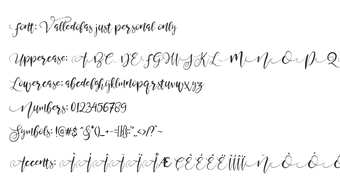 Font: Valledofas just personal only
Uppercase: A B C D E F G H I J K L M N O P Q
Lowercase: abcdefghijklmnopqrstuvwxyz
Numbers: 0123456789
Symbols: !@#$
Accents: Æ Ç È É Ê Ë Ì Í Î Ï